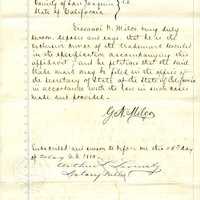 County of San Joaquin } ss
State of California
Giovanni N. Milco being duly
sworn, deposes and says, that he is the
exclusive owner of the trademark described
in the specification accompanying this
affidavit; and he petitions that the said
trade mark may be filed in the office of
the Secretary of State of the State of California
in accordance with the law in such cases
made and provided.
G. N. Milco
Subscribed and sworn to before me this
day
of May A.D. 1880.
Notary Public